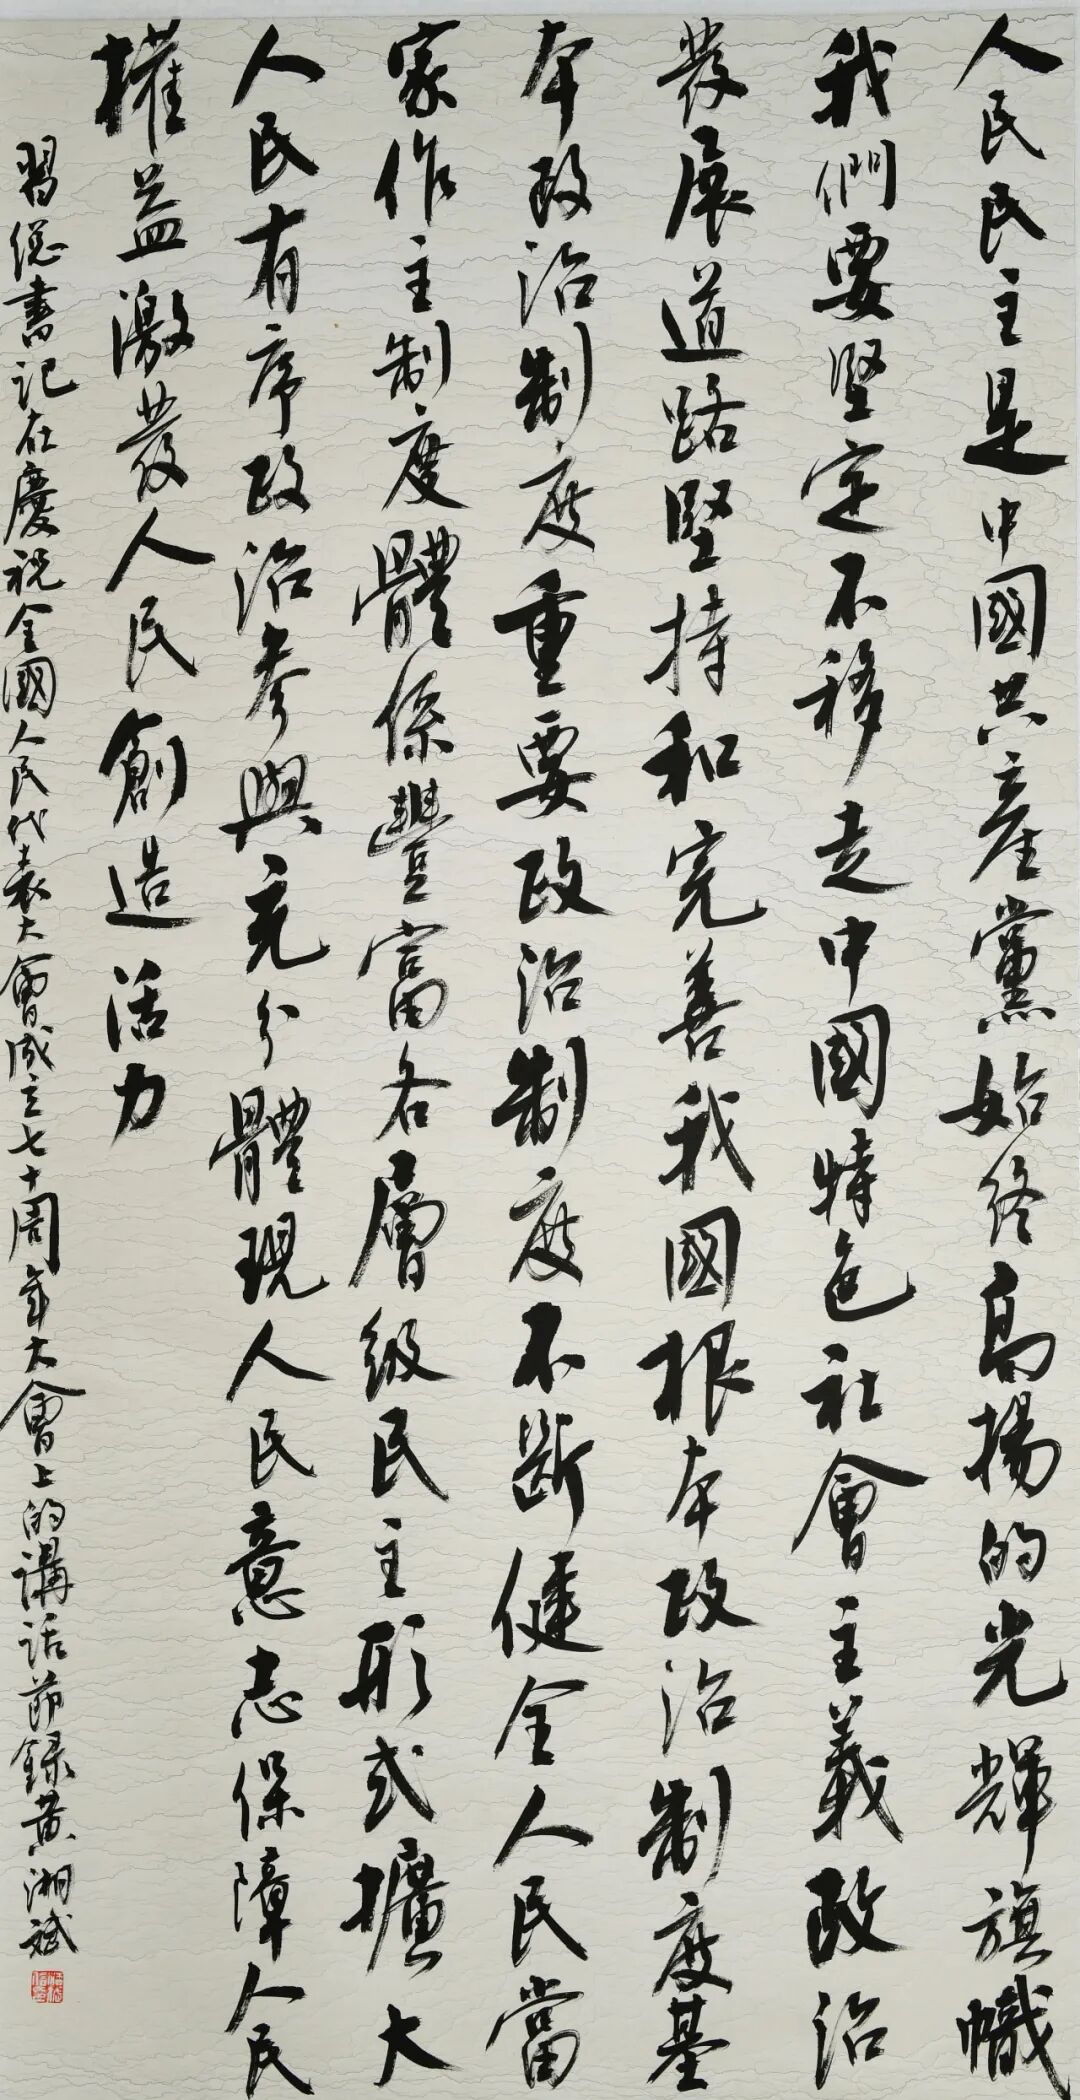 人民民主是中國共產黨始終高揚的光輝旗幟
我們要堅定不移走中國特色社會主義政治
發展道路堅持和完善我國根本政治制度基
本政治制度重要政治制度不斷健全人民當
家作主制度體係豐富各層級民主形式擴大
人民有序政治參與充分體現人民意志保障人民
權益激發人民創造活力
習總書記在慶祝全國人民代表大會成立七十周年大會上的講話節錄黃湘斌